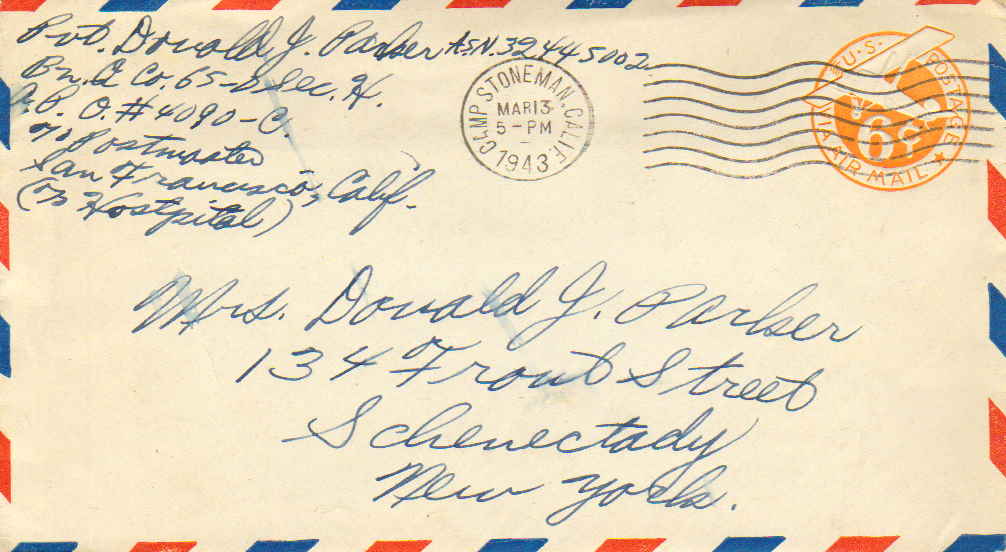 Pvt. Donald J. Parker A.S.N. 32445002
Bn. Q Co. 65-D Sec. H.
A.P.O. #4090-C
℅ Postmaster
San Francisco, Calif.
(℅ Hostpital)
CAMP STONEMAN, CALIF.
MAR 13
5-PM
1943
U.S. POSTAGE
6¢
VIA AIR MAIL
Mrs. Donald J. Parker
134 Front Street
Schenectady
New York.